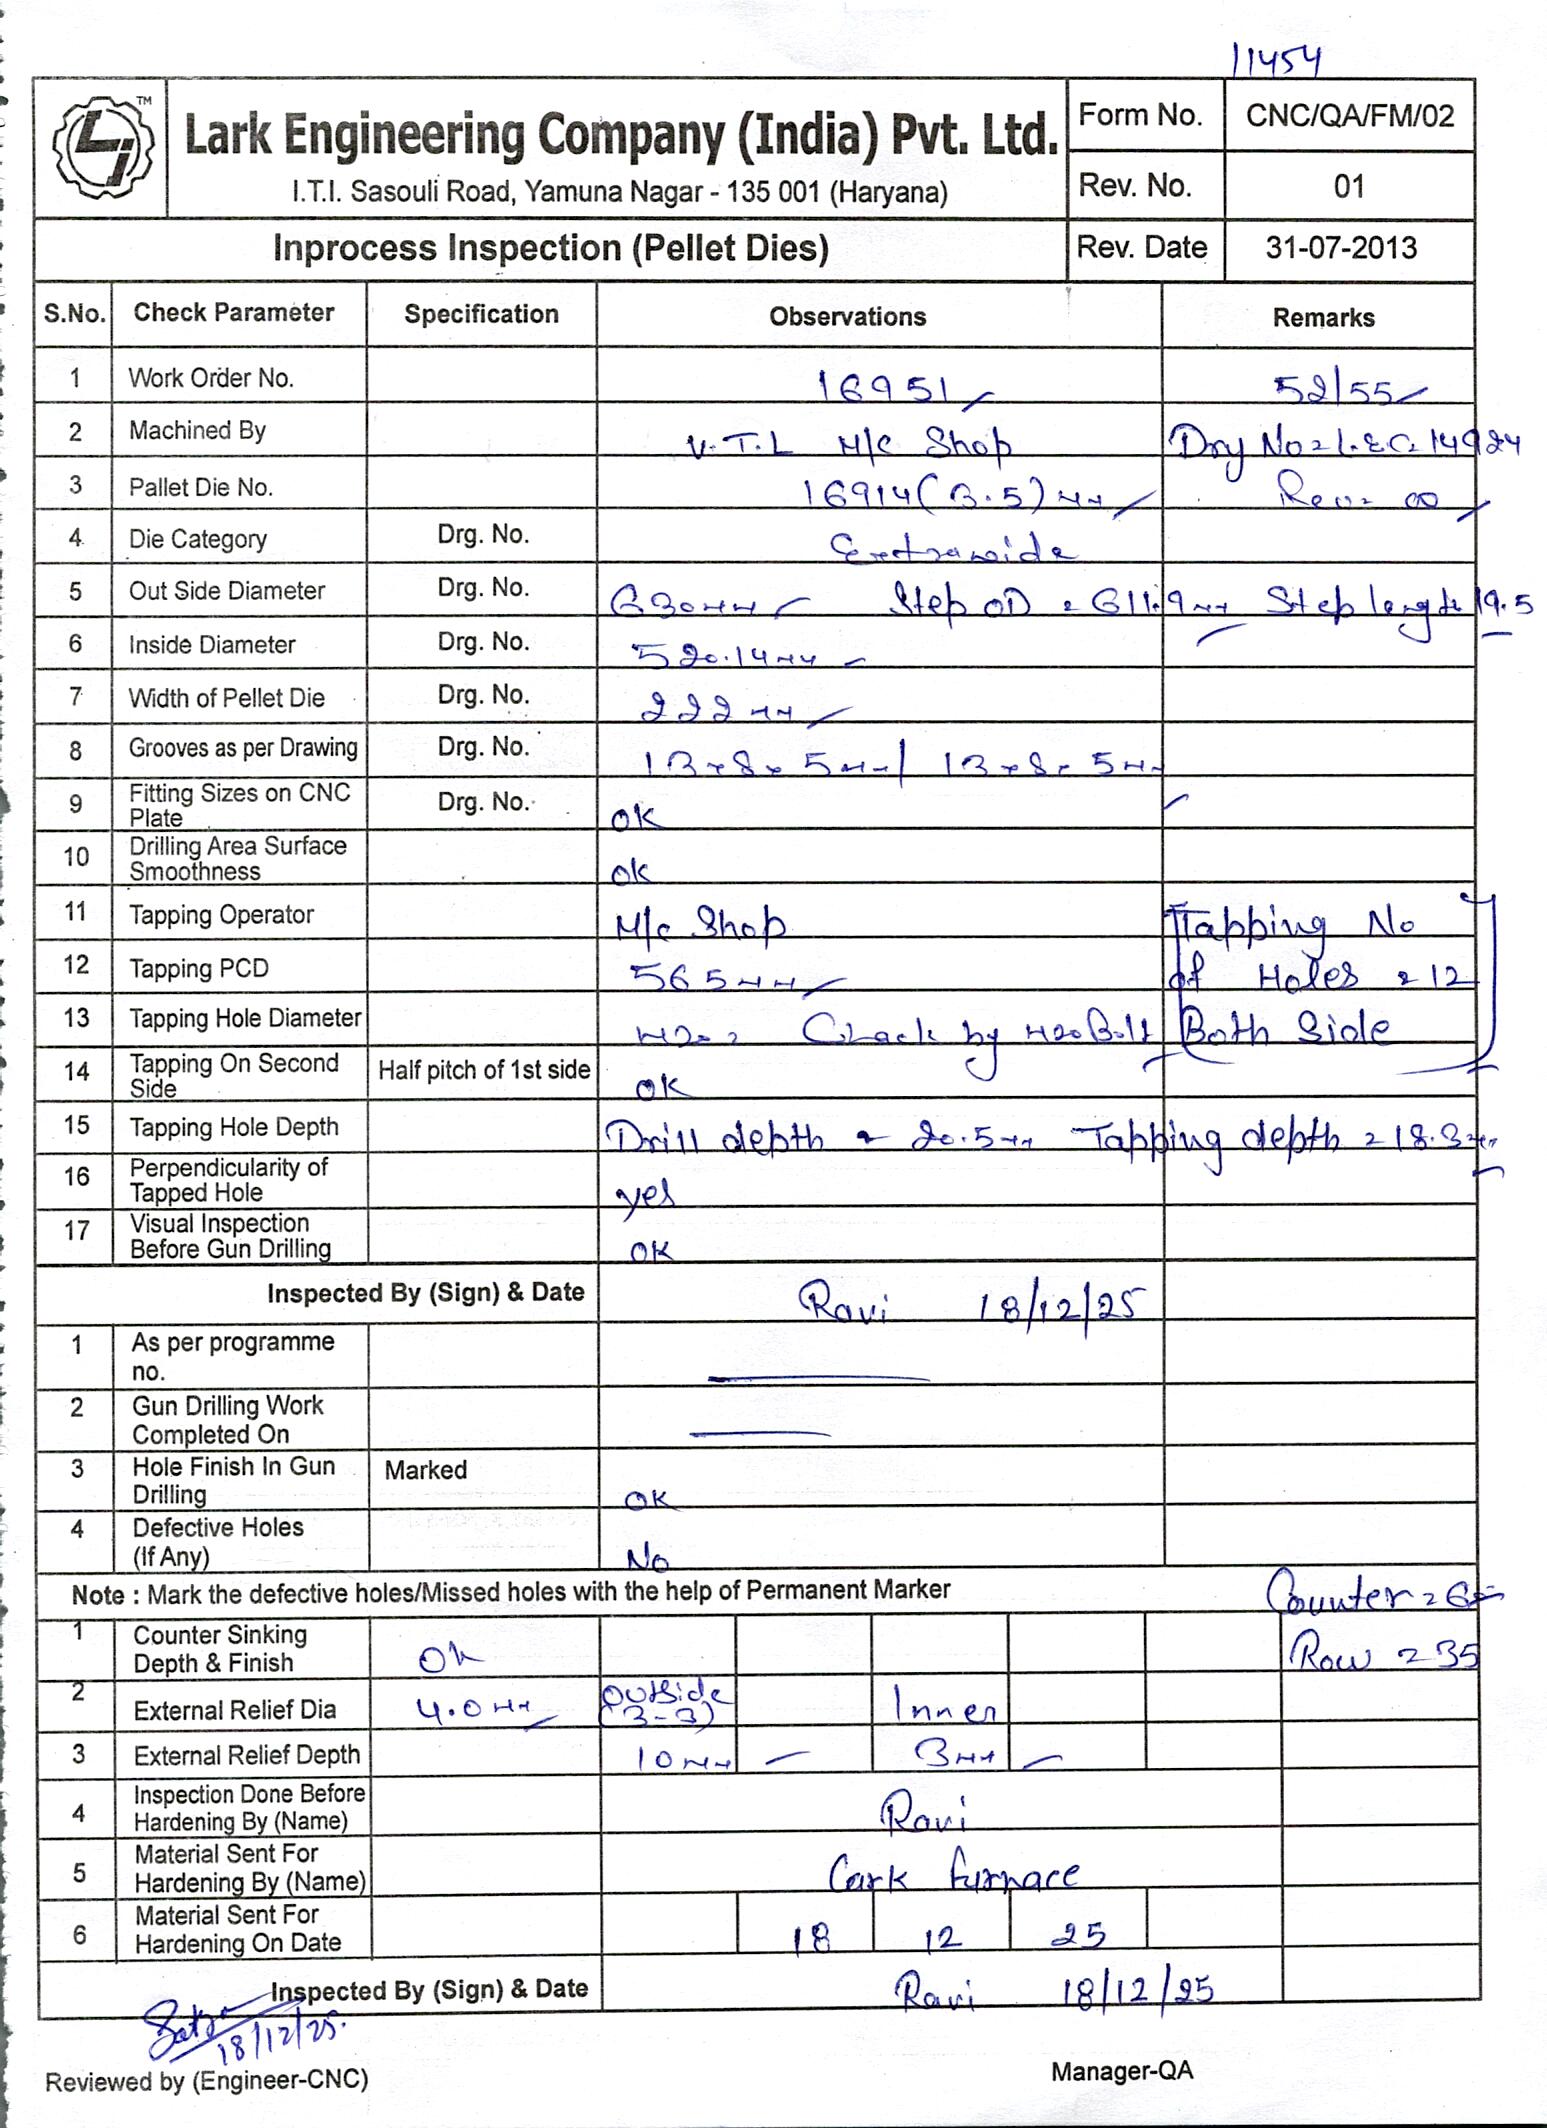 11454
TM
Lark Engineering Company (India) Pvt. Ltd.
I.T.I. Sasouli Road, Yamuna Nagar - 135 001 (Haryana)
Form No. CNC/QA/FM/02
Rev. No. 01
Inprocess Inspection (Pellet Dies) Rev. Date 31-07-2013
S.No. Check Parameter Specification Observations Remarks
1 Work Order No. 16951 52/55
2 Machined By V.T.L M/c Shop Drg No = L.E.C. 14924
3 Pallet Die No. 16914 (3.5) mm Rev = 00
4 Die Category Drg. No. Extrawide
5 Out Side Diameter Drg. No. 630mm Step OD = 611.9mm Step length 19.5
6 Inside Diameter Drg. No. 520.14mm
7 Width of Pellet Die Drg. No. 222mm
8 Grooves as per Drawing Drg. No. 13x8x5mm / 13x8x5mm
9 Fitting Sizes on CNC Plate Drg. No. ok
10 Drilling Area Surface Smoothness ok
11 Tapping Operator M/c Shop Tapping No
12 Tapping PCD 565mm of Holes = 12
13 Tapping Hole Diameter M20 = Check by M20 Bolt Both Side
14 Tapping On Second Side Half pitch of 1st side OK
15 Tapping Hole Depth Drill depth = 20.5mm Tapping depth = 18.3mm
16 Perpendicularity of Tapped Hole yes
17 Visual Inspection Before Gun Drilling OK
Inspected By (Sign) & Date Ravi 18/12/25
1 As per programme no.
2 Gun Drilling Work Completed On
3 Hole Finish In Gun Drilling Marked OK
4 Defective Holes (If Any) No
Note : Mark the defective holes/Missed holes with the help of Permanent Marker Counter =
1 Counter Sinking Depth & Finish Ok Row = 35
2 External Relief Dia 4.0mm Outside (3-3) Inner
3 External Relief Depth 10mm 3mm
4 Inspection Done Before Hardening By (Name) Ravi
5 Material Sent For Hardening By (Name) Cark furnace
6 Material Sent For Hardening On Date 18 12 25
Inspected By (Sign) & Date Ravi 18/12/25
18/12/25.
Reviewed by (Engineer-CNC) Manager-QA